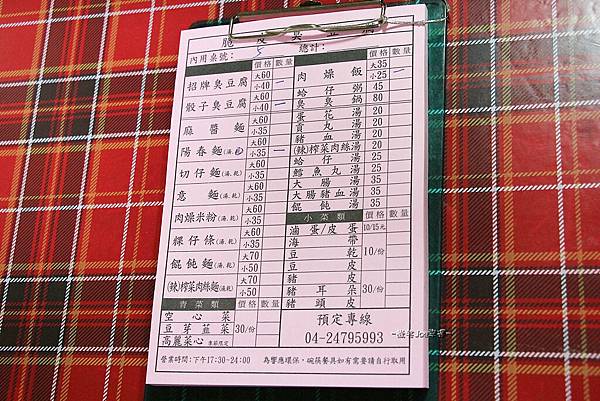 脆皮臭豆腐
內用桌號: 5 總計:
價格 數量
招牌臭豆腐 大60 小40 一
骰子臭豆腐 大60 小40 一
麻醬麵 大60 小35
陽春麵(湯、乾) 大60 小35 一
切仔麵(湯、乾) 大60 小35
意麵(湯、乾) 大60 小35
肉燥米粉(湯、乾) 大60 小35
粿仔條(湯、乾) 大60 小35
餛飩麵(湯、乾) 大70 小50
(辣)榨菜肉絲麵(湯乾) 大70 小50
青菜類 價格 數量
空心菜
豆芽韮菜 30/份
高麗菜心 季節限定
價格 數量
肉燥飯 大35 小25 一
蛤仔粥 45
臭臭鍋 80
蛋花湯 20
貢丸湯 20
豬血湯 20
(辣)榨菜肉絲湯 25
蛤仔湯 25
鱈魚丸湯 25
大腸湯 35
大腸豬血湯 35
餛飩湯 35
小菜類 價格 數量
滷蛋/皮蛋 10/15元
海帶
豆乾 10/份
豆皮
豬耳朵 30/份
豬頭皮
預定專線
04-24795993
營業時間:下午17:30-24:00 為響應環保,碗筷餐具如有需要請自行取用